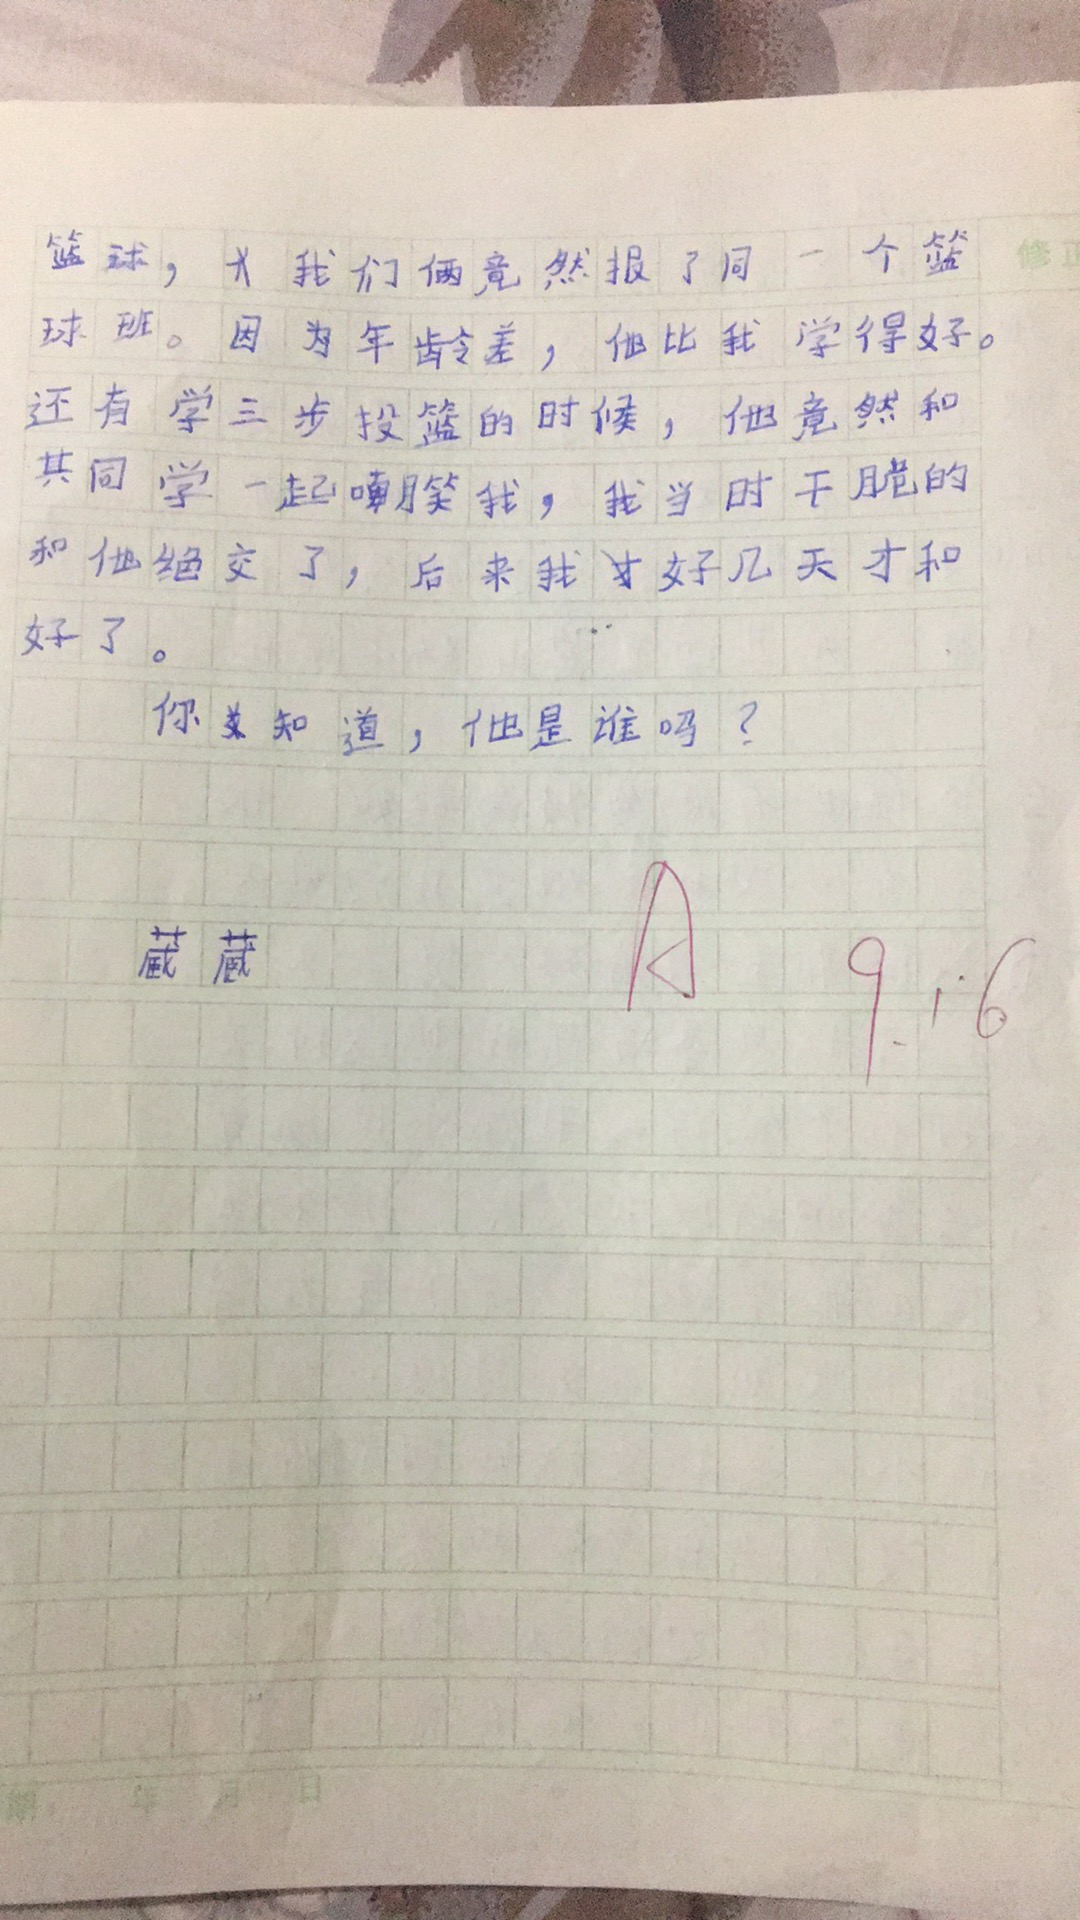 篮球，我们俩竟然报了同一个篮
修正
球班。因为年龄差，他比我学得好。
还有学三步投篮的时候，他竟然和
其同学一起嘲笑我，我当时干脆的
和他绝交了，后来我好几天才和
好了。
你知道，他是谁吗？
蒇蒇
A
9.16